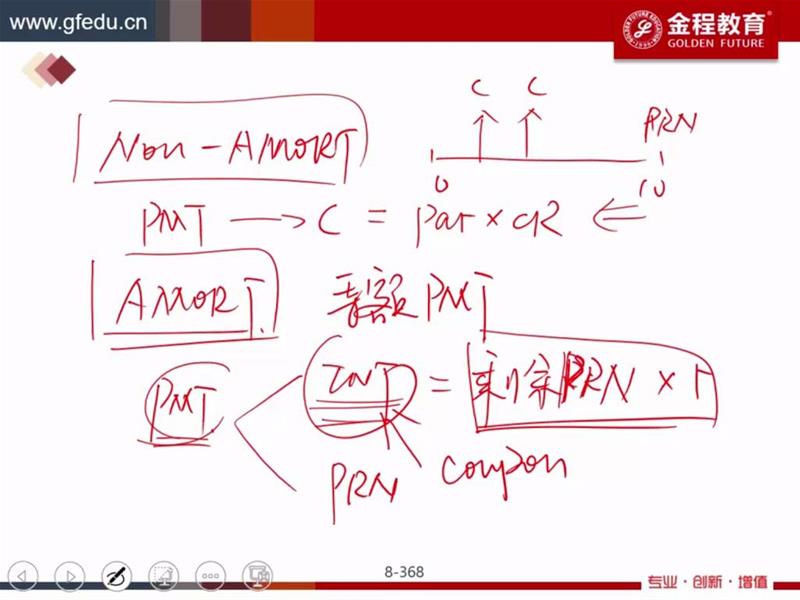 www.gfedu.cn
金程教育
GOLDEN FUTURE
C C
Non-AMORT
PRN
0 10
PMT → C = par × CR ⇐
AMORT. 等额PMT
PMT INT = 剩余PRN × r
PRN coupon
8-368
专业·创新·增值